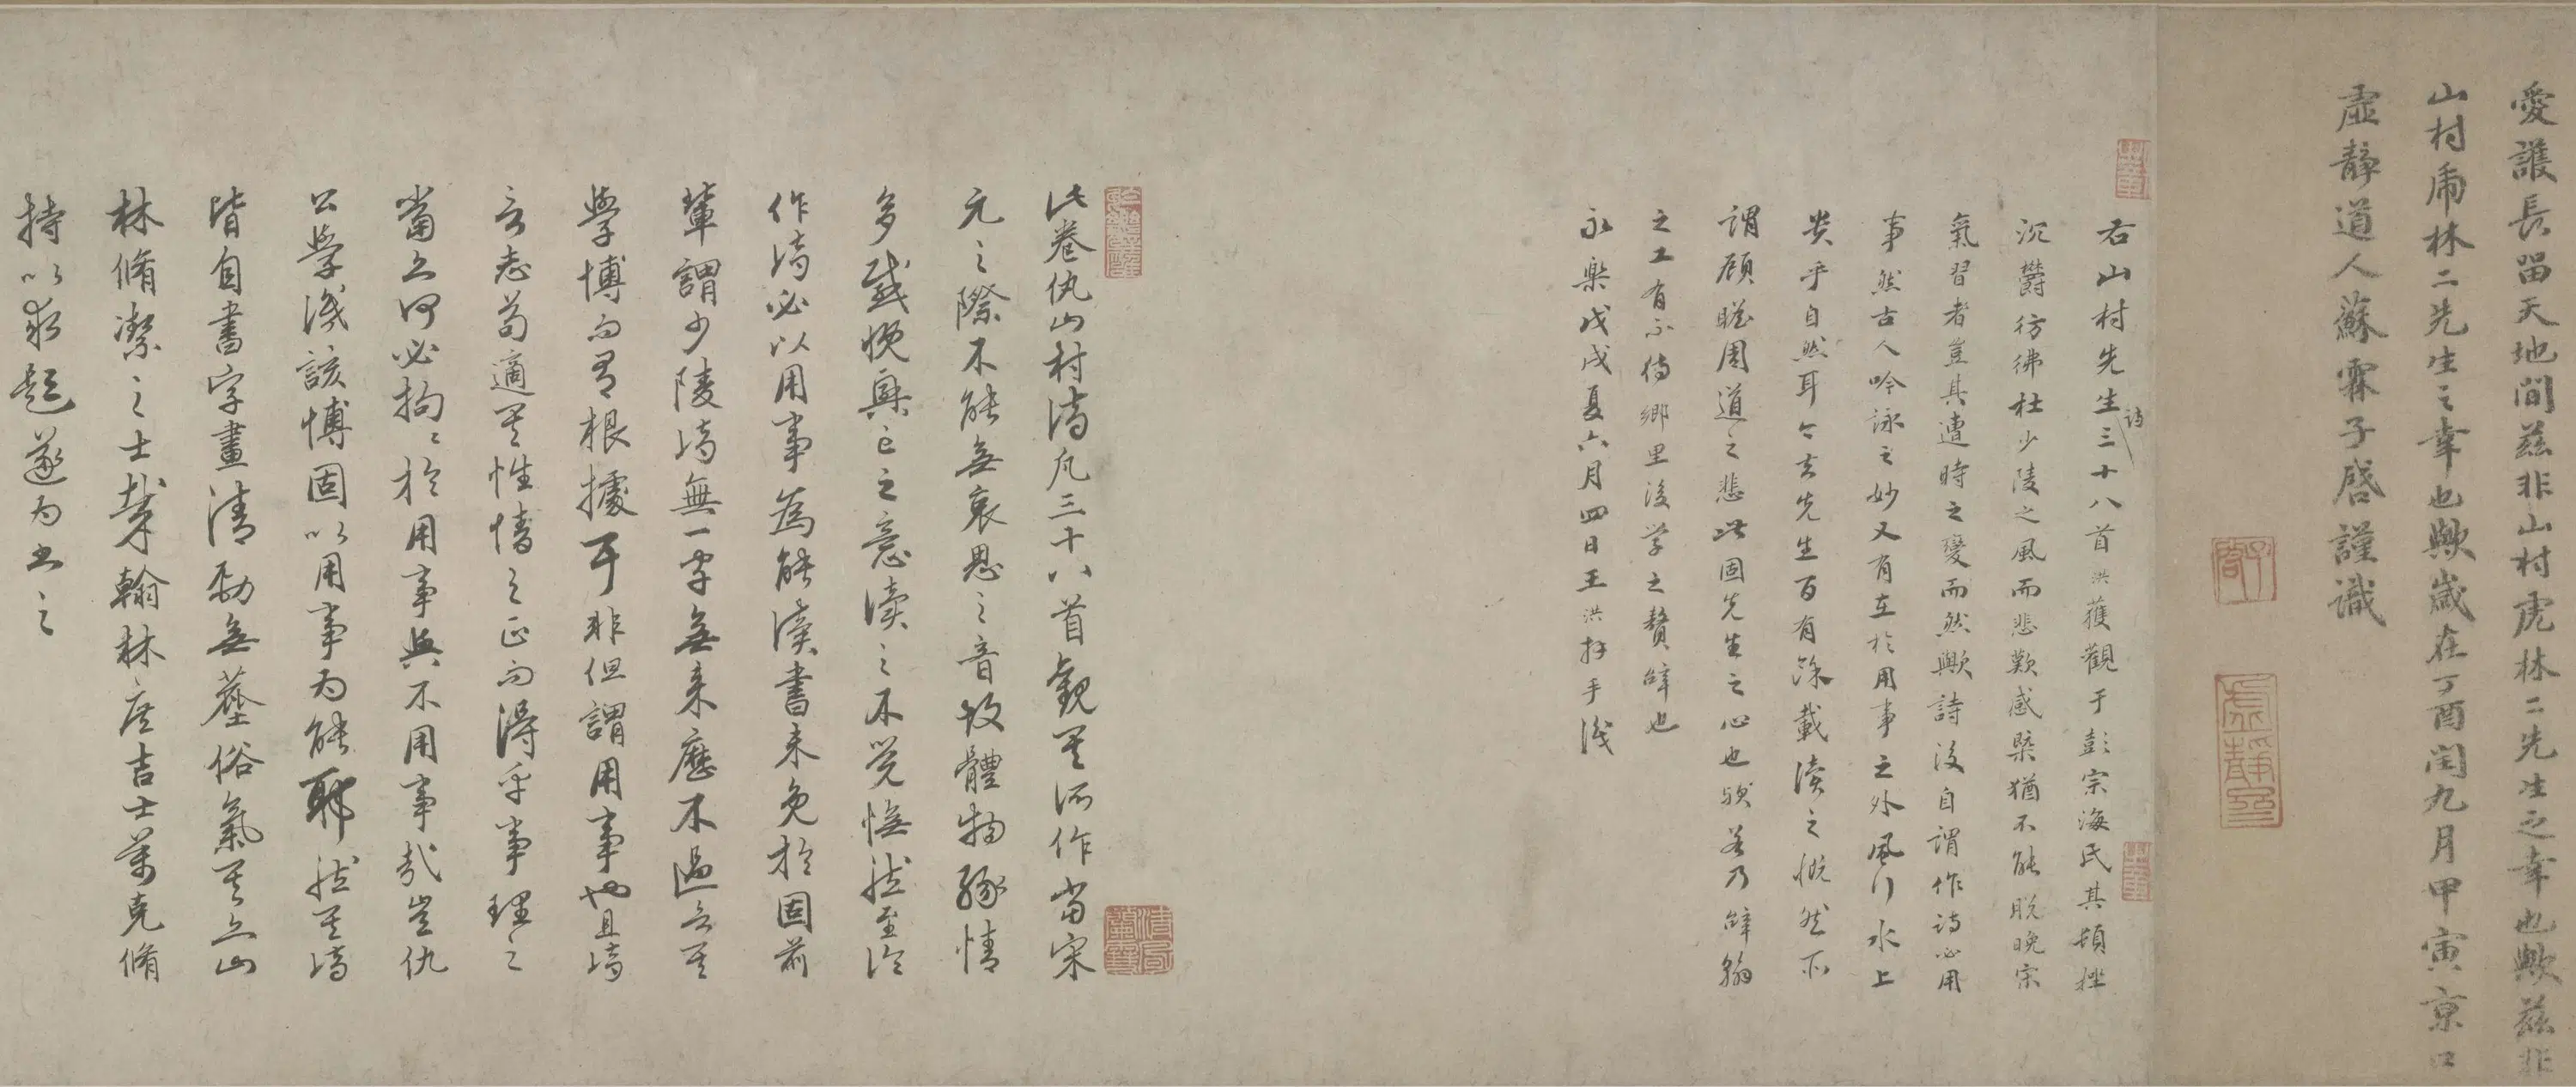 愛護長留天地間茲非山村虎林二先生之幸也歟茲非
山村虎林二先生之幸也歟歲在丁酉閏九月甲寅京口
虛靜道人蘇霖子啓謹識
右山村先生詩三十八首洪獲觀于彭宗海氏其頓挫
沉欝彷彿杜少陵之風而悲歎感槩猶不能脫晚宋
氣習者豈其遭時之變而然歟詩後自謂作詩必用
事然古人吟詠之妙又有在於用事之外風行水上
貴乎自然耳今去先生百有餘載讀之慨然所
謂顧瞻周道之悲此固先生之心也欤若乃辭翰
之工有不待鄉里後學之贅辭也
永樂戊戌夏六月四日王洪拜手識
此卷仇山村詩凡三十八首觀其所作當宋
元之際不能無哀思之音故體物緣情
多感慨興亡之意讀之不覺憮然至論
作詩必以用事為能讀書未免於固前
輩謂少陵詩無一字無来歷不過言其
學博而有根據耳非但謂用事也且詩
言志苟適其性情之正而得乎事理之
當亦何必拘〻於用事與不用事哉豈仇
公學識該博固以用事为能耶然其詩
皆自書字畫清勁無塵俗氣其亦山
林脩潔之士歟翰林庶吉士萬克脩
持以求題遂为書之
子啓
虛靜